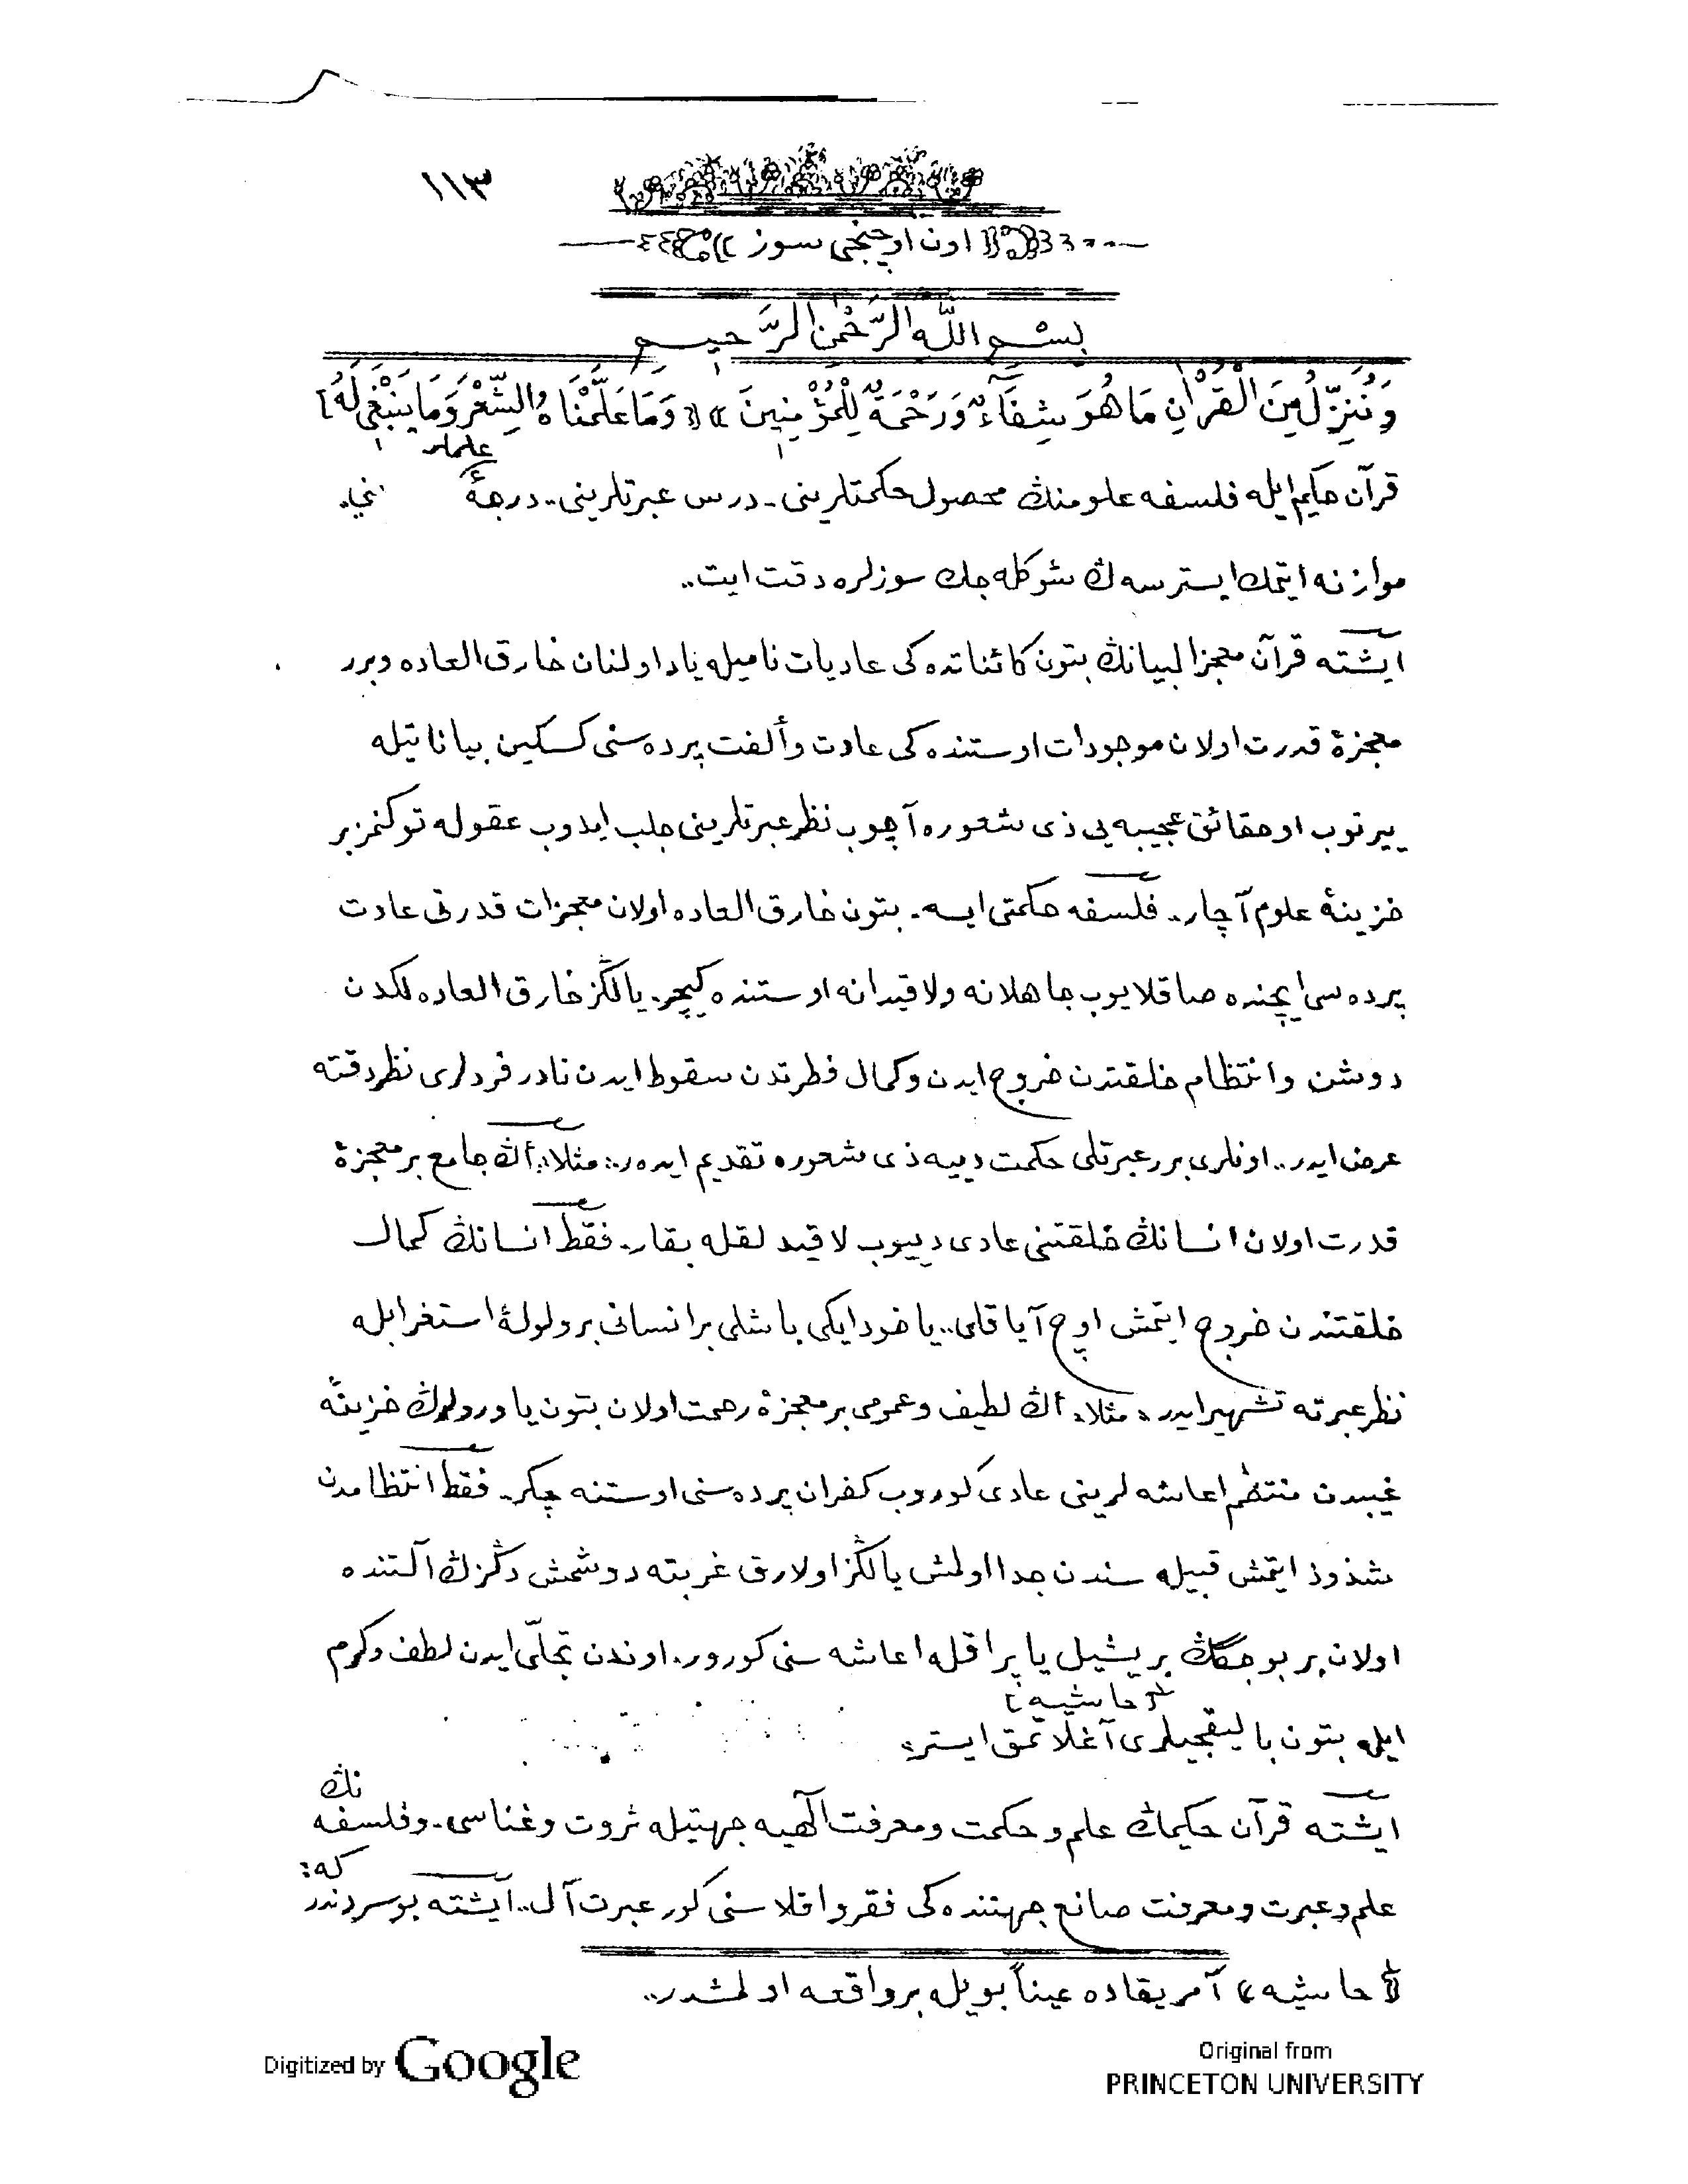 ١١٣
اون اوچنجى سوز
بِسْمِ اللّٰهِ الرَّحْمٰنِ الرَّحِيمِ
وَنُنَزِّلُ مِنَ الْقُرْاٰنِ مَا هُوَ شِفَٓاءٌ وَرَحْمَةٌ لِلْمُؤْمِنِينَ » « وَمَا عَلَّمْنَاهُ الشِّعْرَ وَمَا يَنْبَغِى لَهُ
قرآن حكيم ايله فلسفه علومنڭ محصول حكمتلرينى.. درس عبرتلرينى.. درجهٔ
موازنه ايتمك ايسترسه ڭ شو كله جك سوزلره دقت ايت..
ايشته قرآن معجز البيانڭ بتون كائناتده كى عاديات ناميله ياد اولنان خارق العاده وبرر
معجزهٔ قدرت اولان موجودات اوستنده كى عادت وألفت پرده سنى كسكين بياناتيله
ييرتوب او حقائق عجيبه يى ذى شعوره آچوب نظر عبرتلرينى جلب ايدوب عقوله توكنمز بر
خزينهٔ علوم آچار.. فلسفه حكمتى ايسه.. بتون خارق العاده اولان معجزات قدرتى عادت
پرده سى ايچنده صاقلايوب جاهلانه ولاقيدانه اوستنده كيچر. يالڭز خارق العاده لكدن
دوشن وانتظام خلقتدن خروج ايدن وكمال فطرتدن سقوط ايدن نادر فردلرى نظر دقته
عرض ايدر.. اونلرى برر عبرتلى حكمت دييه ذى شعوره تقديم ايده ر: مثلا: أڭ جامع بر معجزهٔ
قدرت اولان انسانڭ خلقتنى عادى دييوب لاقيدلقله بقار.. فقط انسانڭ كمال
خلقتندن خروج ايتمش اوچ آياقلى.. ياخود ايكى باشلى بر انسانى بر ولولهٔ استغرابله
نظر عبرته تشهير ايدر: مثلا: أڭ لطيف وعمومى بر معجزهٔ رحمت اولان بتون ياورولرڭ خزينهٔ
غيبدن منتظم اعاشه لرينى عادى كوروب كفران پرده سنى اوستنه چكر.. فقط انتظامدن
شذوذ ايتمش قبيله سندن جدا اولمش يالڭز اولارق غربته دوشمش دڭزڭ آلتنده
اولان بر بوجگڭ بر يشيل ياپراقله اعاشه سنى كورور. اوندن تجلّى ايدن لطف وكرم
[حاشيه]
ايله بتون باليقجيلرى آغلاتمق ايستر:
نڭ
ايشته قرآن حكيمڭ علم و حكمت ومعرفت الٓهيه جهتيله ثروت وغناسى.. وفلسفه
كه:
علم وعبرت ومعرفت صانع جهتنده كى فقر وافلاسنى كور عبرت آل.. ايشته بو سردندر
(حاشيه) آمريقاده عيناً بويله بر واقعه اولمشدر..
Digitized by Google
Original from
PRINCETON UNIVERSITY